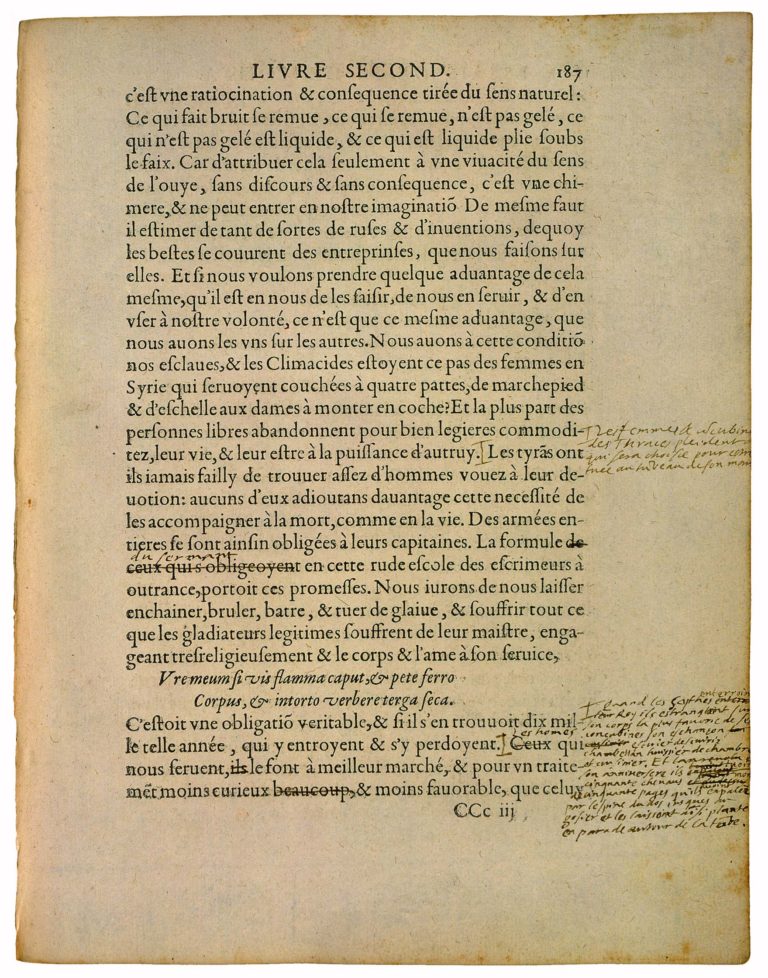 LIVRE SECOND. 187
c'eſt vne ratiocination & conſequence tirée du ſens naturel:
Ce qui fait bruit ſe remue, ce qui ſe remue, n'eſt pas gelé, ce
qui n'eſt pas gelé eſt liquide, & ce qui eſt liquide plie ſoubs
le faix. Car d'attribuer cela ſeulement à vne viuacité du ſens
de l'ouye, ſans diſcours & ſans conſequence, c'eſt vne chi-
mere, & ne peut entrer en noſtre imaginatiõ De meſme faut
il eſtimer de tant de ſortes de ruſes & d'inuentions, dequoy
les beſtes ſe couurent des entreprinſes, que nous faiſons ſur
elles. Et ſi nous voulons prendre quelque aduantage de cela
meſme, qu'il eſt en nous de les ſaiſir, de nous en ſeruir, & d'en
vſer à noſtre volonté, ce n'eſt que ce meſme aduantage, que
nous auons les vns ſur les autres. Nous auons à cette conditiõ
nos eſclaues, & les Climacides eſtoyent ce pas des femmes en
Syrie qui ſeruoyent couchées à quatre pattes, de marchepied
& d'eſchelle aux dames à monter en coche? Et la plus part des
perſonnes libres abandonnent pour bien legieres commodi-
tez, leur vie, & leur eſtre à la puiſſance d'autruy. Les tyrãs ont
Les femmes &
des Thraces pleident a
qui sera choisie pour
tuee au tumbeau de son
ils iamais failly de trouuer aſſez d'hommes vouez à leur de-
uotion: aucuns d'eux adioutans dauantage cette neceſſité de
les accompaigner à la mort, comme en la vie. Des armées en-
tieres ſe ſont ainſin obligées à leurs capitaines. La formule de
du serment
ceux qui s'obligeoyent en cette rude eſcole des eſcrimeurs à
outrance, portoit ces promeſſes. Nous iurons de nous laiſſer
enchainer, bruler, batre, & tuer de glaiue, & ſouffrir tout ce
que les gladiateurs legitimes ſouffrent de leur maiſtre, enga-
geant treſreligieusement & le corps & l'ame à ſon ſeruice,
Vre meum ſi vis flamma caput, & pete ferro
Corpus, & intorto verbere terga ſeca.
C'eſtoit vne obligatiõ veritable, & ſi il s'en trouuoit dix mil-
les homes
le telle année, qui y entroyent & s'y perdoyent. Ceux qui
nous ſeruent, ils le font à meilleur marché, & pour vn traite-
mẽt moins curieux beaucoup, & moins fauorable, que celuy
CCc iij
Quand les
leur Roy ils estrangloint sur
son corps la plus favorie de ses
concubines son eschançon
escuier
chambellan huyssier de chambre
et cuisinier. Et
son anniversere ils
cinquante chevaus
cinquante pages qu'ils
par l'espine du dos jusques au
gosier et les laissoint
en parade autour de la